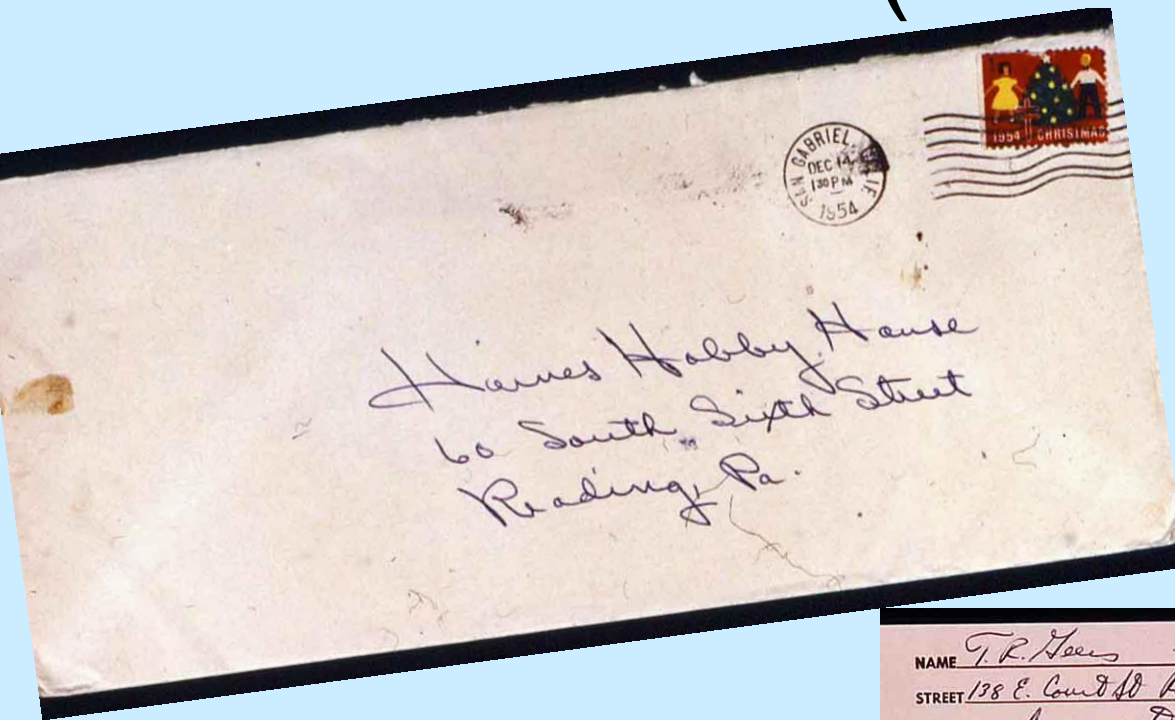 1954 CHRISTMAS
SAN GABRIEL, CALIF.
DEC 14
1 30 PM
1954
Haines Hobby House
60 South Sixth Street
Reading, Pa.
NAME T. R. Geers
STREET 138 E. Court St